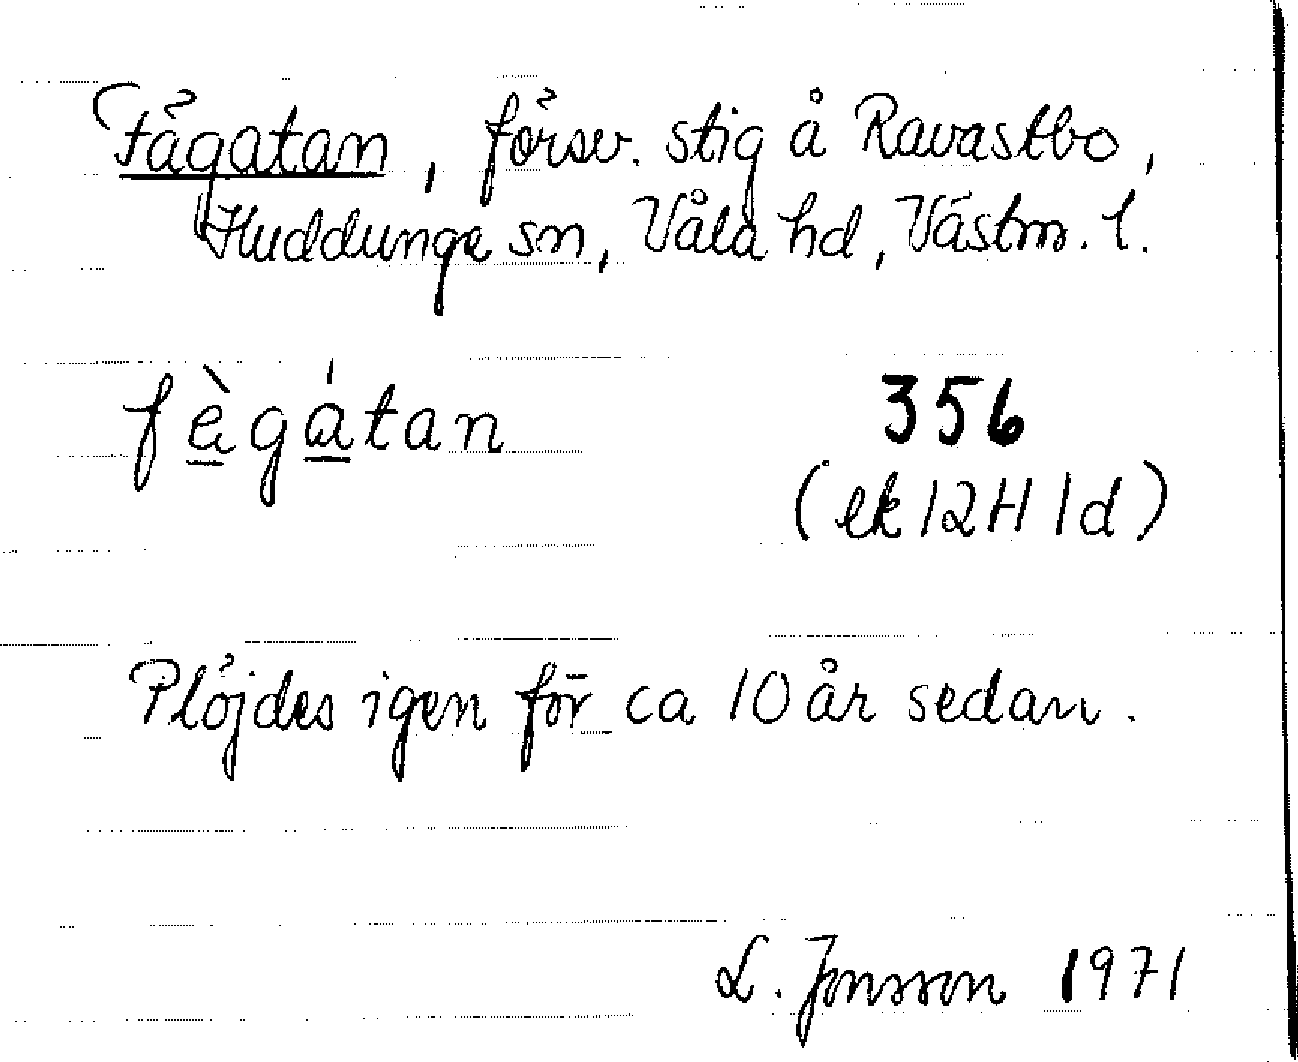 Fägatan, försv. stig å Ravastbo,
Huddunge sn, Våla hd, Västm. l.
fɛ̀gátan
356
(ek 12H 1d)
Plöjdes igen för ca 10 år sedan.
L. Jonsson 1971